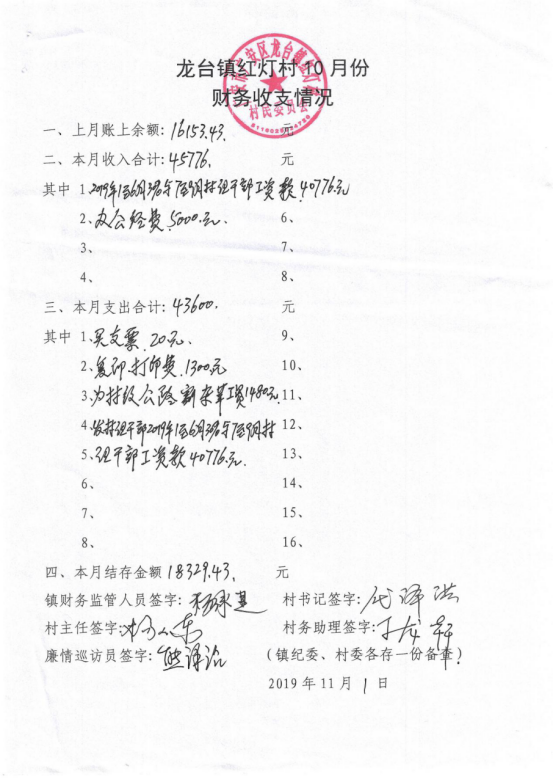 龙台镇红灯村10月份
财务收支情况
村民委员会
一、上月账上余额: 16153.43. 元
二、本月收入合计: 45776. 元
其中 1、2019年1至6月绩与7至9月村组干部工资款40776元
2、办公经费5000.元. 6、
3、 7、
4、 8、
三、本月支出合计: 43600. 元
其中 1、买支票20元. 9、
2、复印.打印费.1300元 10、
3、为村级公路杂草工资1480元 11、
4、发村组干部2019年1至6月绩与7至9月村 12、
5、组干部工资款40776元. 13、
6、 14、
7、 15、
8、 16、
四、本月结存金额 18329.43. 元
镇财务监管人员签字: 村书记签字:
村主任签字: 村务助理签字:
廉情巡访员签字: (镇纪委、村委各存一份备查)
2019年11月1日